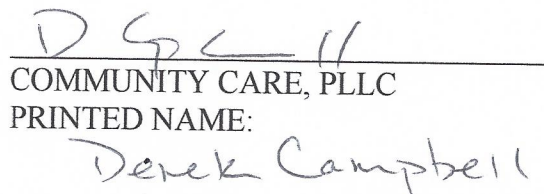 COMMUNITY CARE, PLLC
PRINTED NAME:
Derek Campbell